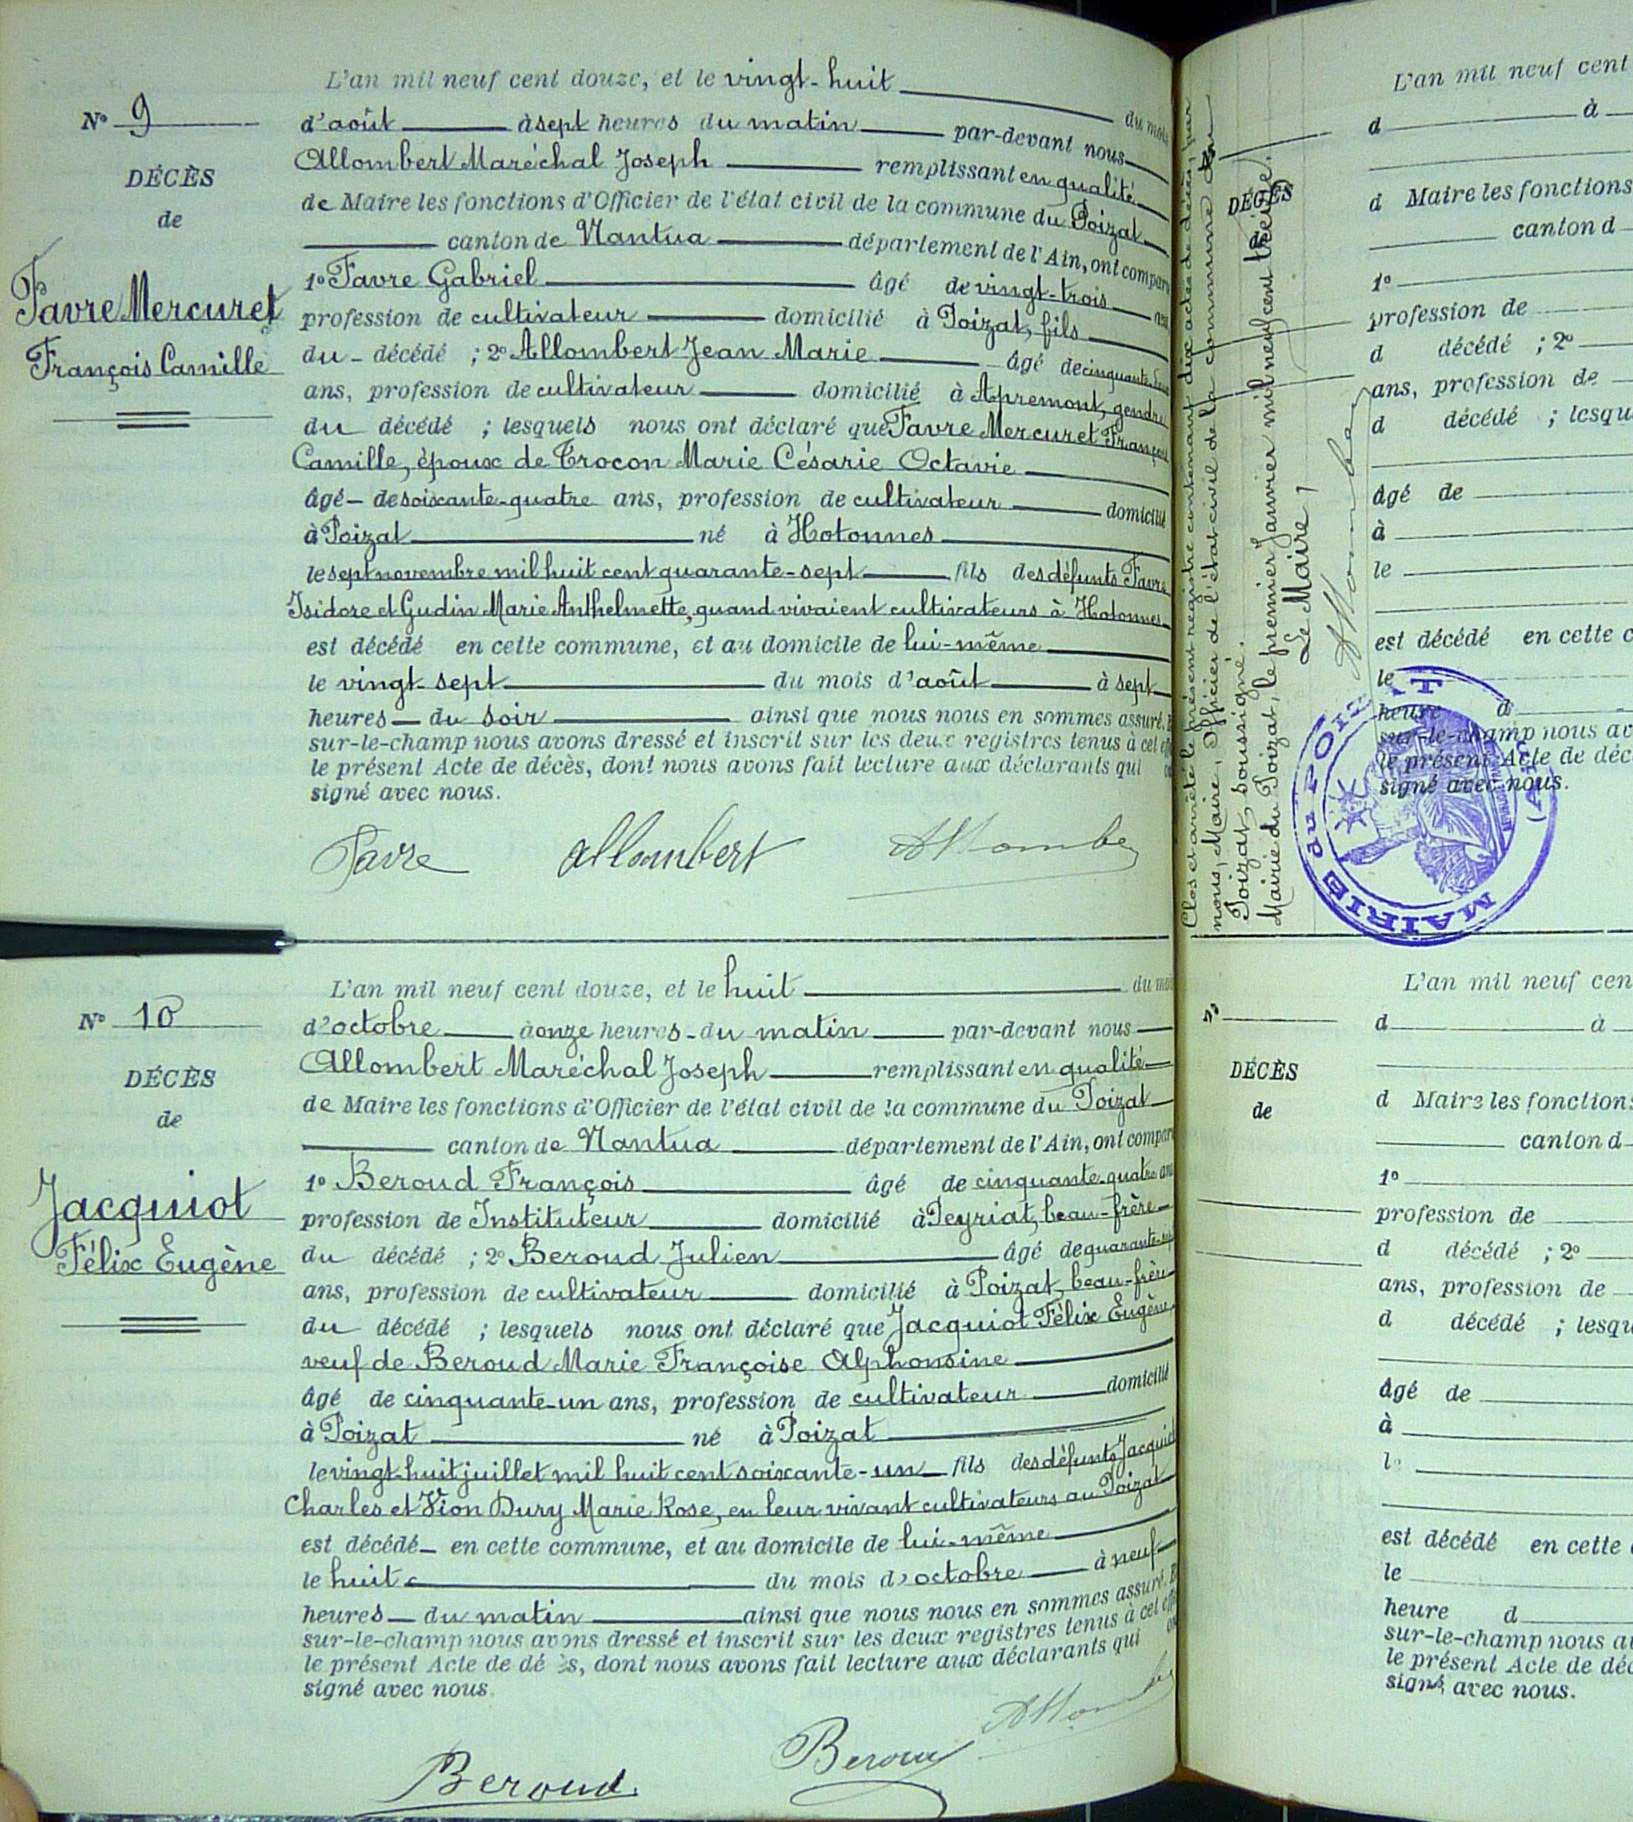 L'an mil neuf cent douze, et le vingt-huit du mois
N° 9
d'août à sept heures du matin par-devant nous
DÉCÈS
Allombert Maréchal Joseph remplissant en qualité
de
de Maire les fonctions d'Officier de l'état civil de la commune du Poizat
canton de Nantua département de l'Ain, ont compar
Favre Mercuret
1° Favre Gabriel âgé de vingt-trois ans
profession de cultivateur domicilié à Poizat, fils
François Camille
du décédé ; 2° Allombert Jean Marie âgé de cinquante
ans, profession de cultivateur domicilié à Apremont, gendre
du décédé ; lesquels nous ont déclaré que Favre Mercuret François
Camille, époux de Crocon Marie Césarie Octavie
âgé de soixante-quatre ans, profession de cultivateur domicilié
à Poizat né à Hotonnes
le sept novembre mil huit cent quarante-sept fils des défunts Favre
Isidore et Gudin Marie Anthelmette, quand vivaient cultivateurs à Hotonnes
est décédé en cette commune, et au domicile de lui-même
le vingt-sept du mois d'août à sept
heures du soir ainsi que nous nous en sommes assuré.
sur-le-champ nous avons dressé et inscrit sur les deux registres tenus à cet eff
le présent Acte de décès, dont nous avons fait lecture aux déclarants qui
signé avec nous.
Favre Allombert Allomber
L'an mil neuf cent douze, et le huit du moi
N° 10
d'octobre à onze heures du matin par-devant nous
Allombert Maréchal Joseph remplissant en qualité
DÉCÈS
de Maire les fonctions d'Officier de l'état civil de la commune du Poizat
de
canton de Nantua département de l'Ain, ont compar
1° Beroud François âgé de cinquante-quatre ans
Jacquiot
profession de Instituteur domicilié à Peyriat, beau-frère
Félix Eugène
du décédé ; 2° Beroud Julien âgé de quarante
ans, profession de cultivateur domicilié à Poizat, beau-frère
du décédé ; lesquels nous ont déclaré que Jacquiot Félix Eugène
veuf de Beroud Marie Françoise Alphonsine
âgé de cinquante-un ans, profession de cultivateur domicilié
à Poizat né à Poizat
le vingt-huit juillet mil huit cent soixante-un fils des défunts Jacquiot
Charles et Vion Dury Marie Rose, en leur vivant cultivateurs au Poizat
est décédé en cette commune, et au domicile de lui-même
le huit du mois d'octobre à neuf
heures du matin ainsi que nous nous en sommes assuré.
sur-le-champ nous avons dressé et inscrit sur les deux registres tenus à cet eff
le présent Acte de dé ès, dont nous avons fait lecture aux déclarants qui
signé avec nous.
Beroud Beroud Allomber
Clos et arrêté le présent registre contenant dix actes de décès, par
nous, Maire, Officier de l'état civil de la commune du
Poizat, soussigné.
Mairie du Poizat, le premier janvier mil neuf cent treize.
Le Maire,
Allomber
MAIRIE du POIZAT (AIN)
L'an mil neuf cent
N°
d à
DÉCÈS
d Maire les fonctions
de
canton d
1°
profession de
d décédé ; 2°
ans, profession de
d décédé ; lesqu
âgé de
à
le
est décédé en cette c
le
heure d
sur-le-champ nous av
le présent Acte de déc
signé avec nous.
L'an mil neuf cen
N°
d à
DÉCÈS
de
d Maire les fonctions
canton d
1°
profession de
d décédé ; 2°
ans, profession de
d décédé ; lesqu
âgé de
à
l
est décédé en cette
le
heure d
sur-le-champ nous a
le présent Acte de déc
signé avec nous.